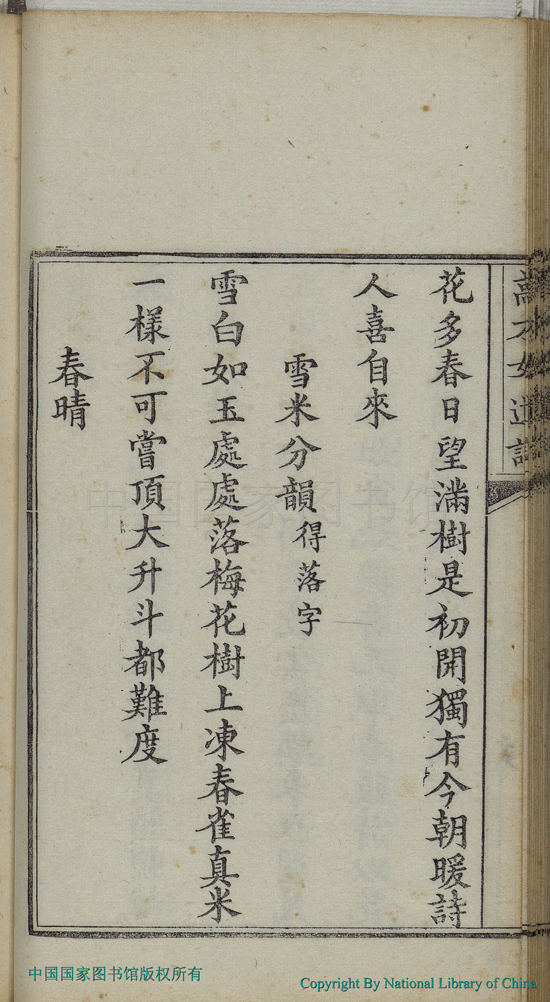 花多春日望滿樹是初開獨有今朝暖詩
人喜自來
雪米分韻得落字
雪白如玉處處落梅花樹上凍春雀真米
一樣不可嘗頂大升斗都難度
春晴
中国国家图书馆
中国国家图书馆版权所有
Copyright By National Library of China